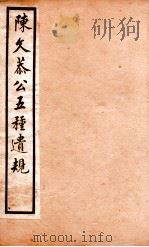 陳文恭公五種遺規
mtoou.info